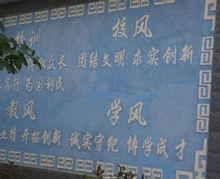 校训 校风
众长 团结文明 求实创新
行 为国利民
教风 学风
开拓创新 诚实守纪 博学成才